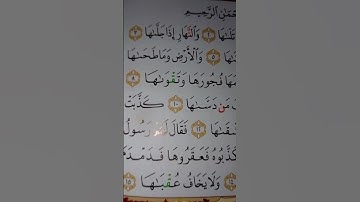 حْمَٰنِ ٱلرَّحِيمِ
تَلَىٰهَا ٢ وَٱلنَّهَارِ إِذَا جَلَّىٰهَا ٣
ىٰهَا ٥ وَٱلْأَرْضِ وَمَا طَحَىٰهَا
مَهَا فُجُورَهَا وَتَقْوَىٰهَا ٨
بَ مَن دَسَّىٰهَا ١٠ كَذَّبَتْ
شْقَىٰهَا ١٢ فَقَالَ لَهُمْ رَسُولُ
كَذَّبُوهُ فَعَقَرُوهَا فَدَمْدَمَ
١٤ وَلَا يَخَافُ عُقْبَىٰهَا ١٥